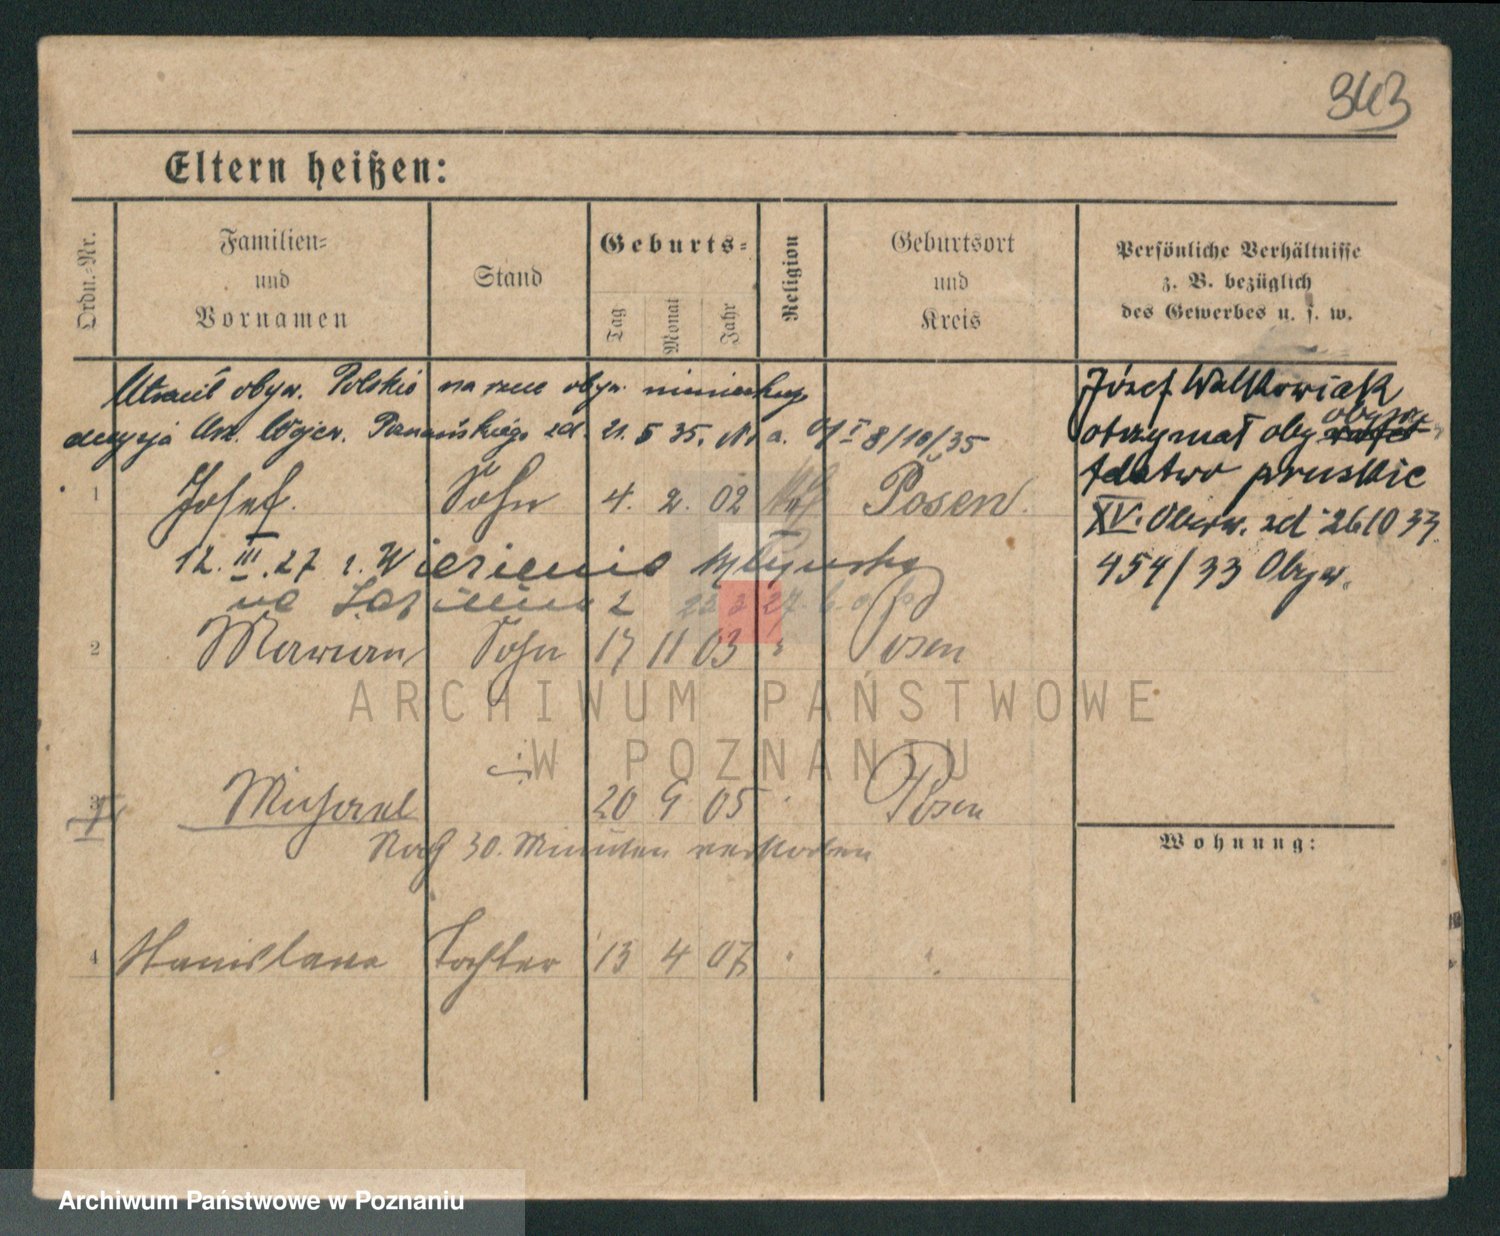 343
Eltern heißen:
Ordn.-Nr.
Familien- und Vornamen
Stand
Geburts-
Tag
Monat
Jahr
Religion
Geburtsort und Kreis
Persönliche Verhältnisse
z. B. bezüglich
des Gewerbes u. s. w.
Utracił obyw. Polskie na rzecz obyw. niemieckiego
decyzja Urz. Wojew. Poznańskiego zd. 21. 5 35. Nr a. I 8/10/35
1 Josef. Sohn 4. 2. 02 Posen.
12. III. 27 z.
22 2 27.
2 Marian Sohn 17 11 03 " Posen
3 Michael 20 9 05 " Posen
Nach 30. Minuten verstorben
4 Stanislawa Tochter 13 4 07 " "
Józef Walkowiak
otrzymał oby obywa
telstwo pruskie
XV. zd 26 10 33
454/33 Obyw.
Wohnung:
ARCHIWUM PAŃSTWOWE
W POZNANIU
Archiwum Państwowe w Poznaniu